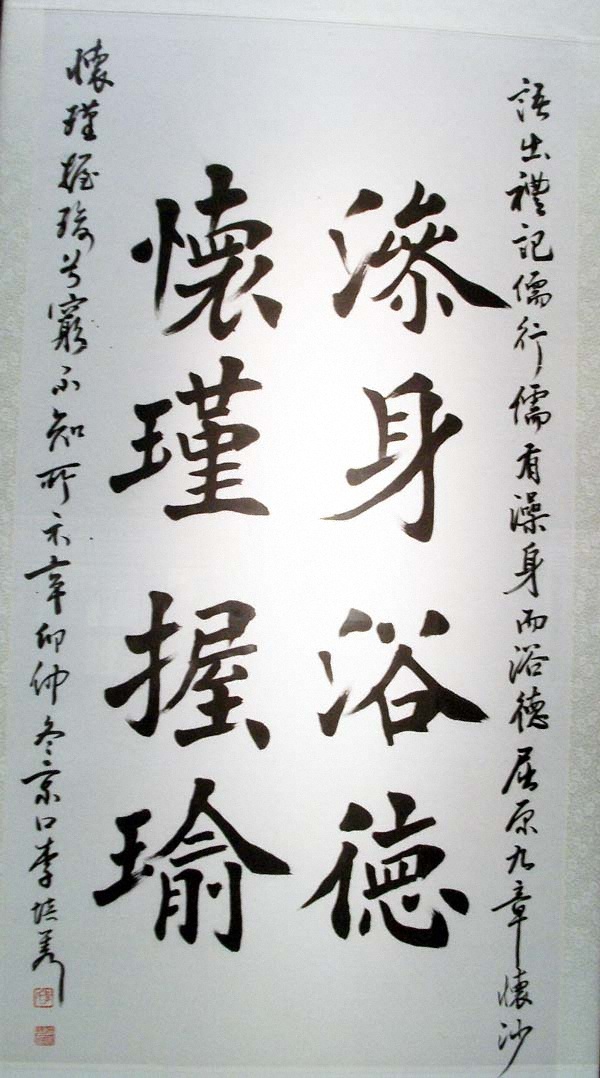 語出禮記儒行儒有澡身而浴德屈原九章懷沙
澡身浴德
懷瑾握瑜
懷瑾握瑜兮窮不知所示辛卯仲冬京口李培隽